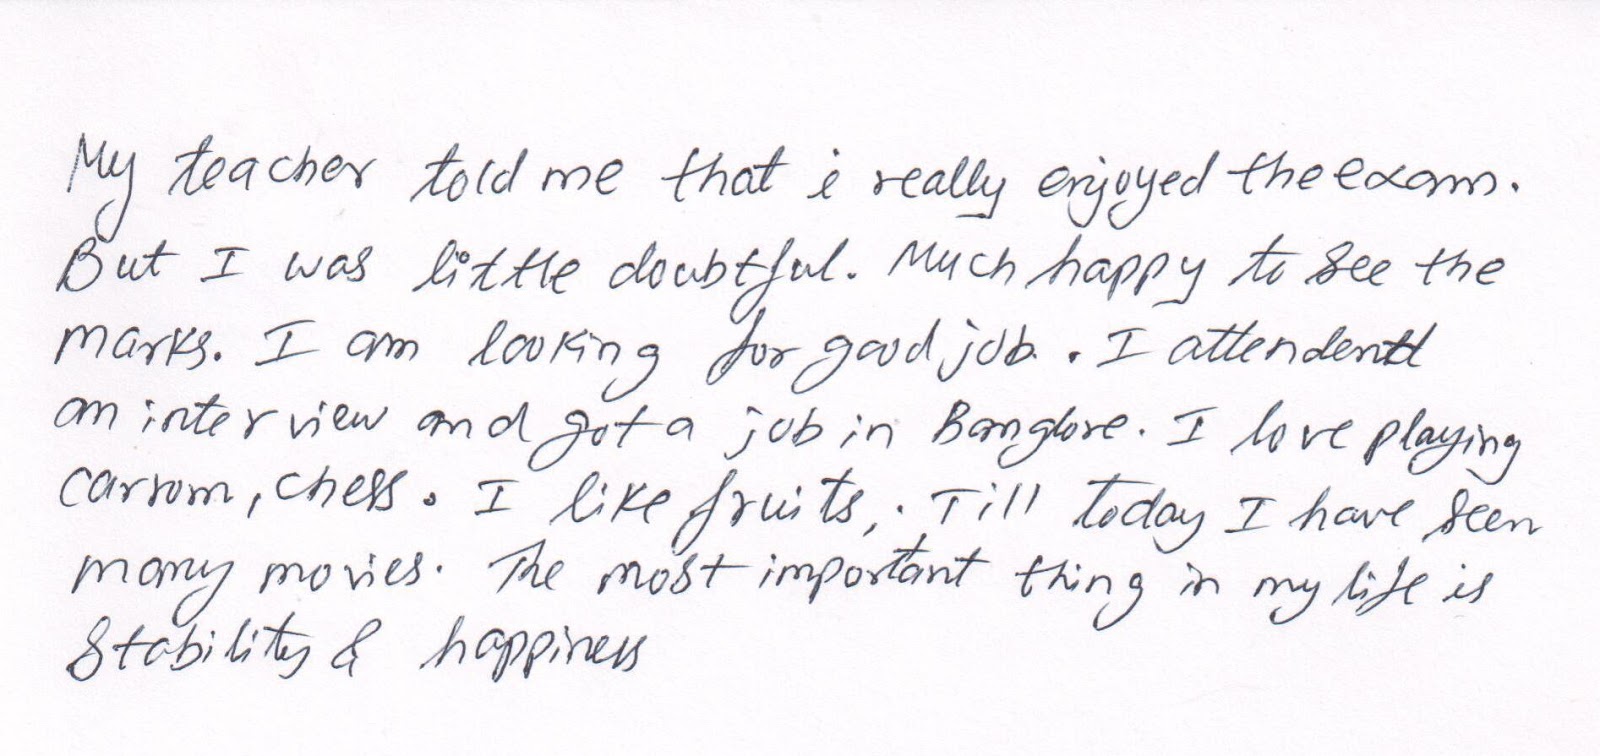 My teacher told me that i really enjoyed the exam.
But I was little doubtful. Much happy to see the
marks. I am looking for good job. I attendent
an interview and got a job in Banglore. I love playing
carrom, chess. I like fruits,. Till today I have seen
many movies. The most important thing in my life is
Stability & happiness